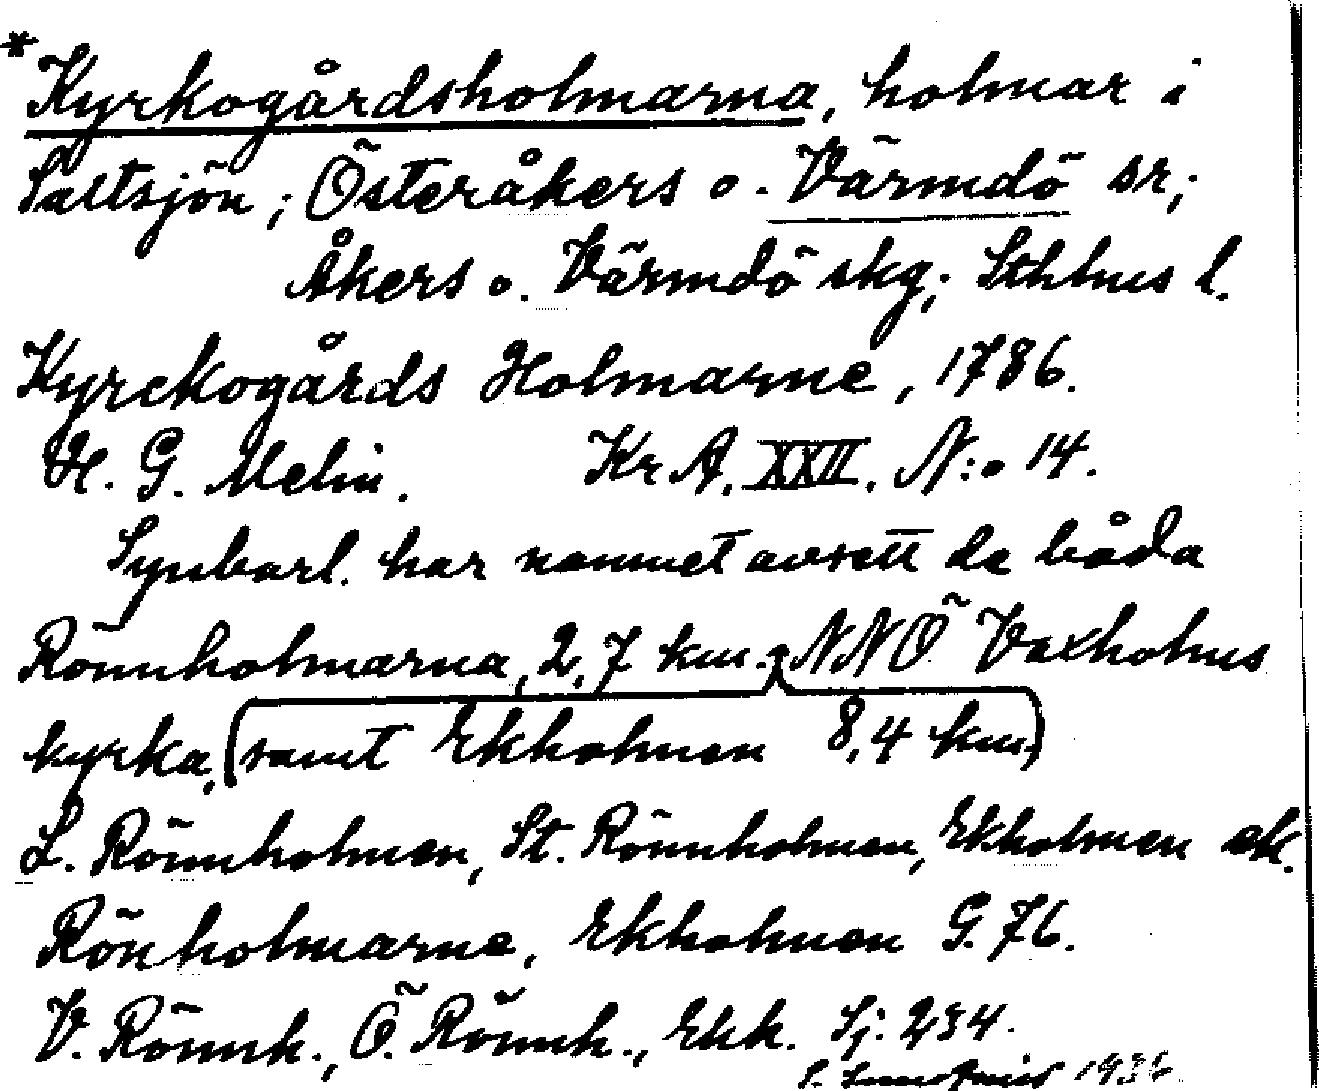 *Kyrkogårdsholmarna, holmar i
Saltsjön; Österåkers o. Värmdö sr;
Åkers o. Värmdö skg; Sthlms l.
Kyrckogårds Holmarne, 1786.
H. G. Melin. Kr A. XXII. N:o 14.
Synbarl. har namnet avsett de båda
Rönnholmarna, 2,7 km. NNÖ Vaxholms
kyrka, (samt Ekholmen 8,4 km.)
L. Rönnholmen, St. Rönnholmen, Ekholmen ek.
Rönholmarne, Ekholmen G. 76.
V. Rönnh., Ö. Rönnh., Ekh. Sj. 234.
1936